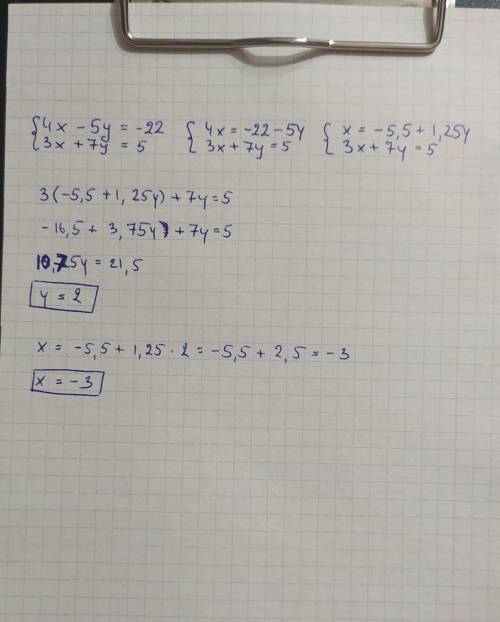 {4x - 5y = -22 {4x = -22 - 5y {x = -5,5 + 1,25y
{3x + 7y = 5 {3x + 7y = 5 {3x + 7y = 5
3(-5,5 + 1,25y) + 7y = 5
-16,5 + 3,75y + 7y = 5
10,75y = 21,5
y = 2
x = -5,5 + 1,25 · 2 = -5,5 + 2,5 = -3
x = -3